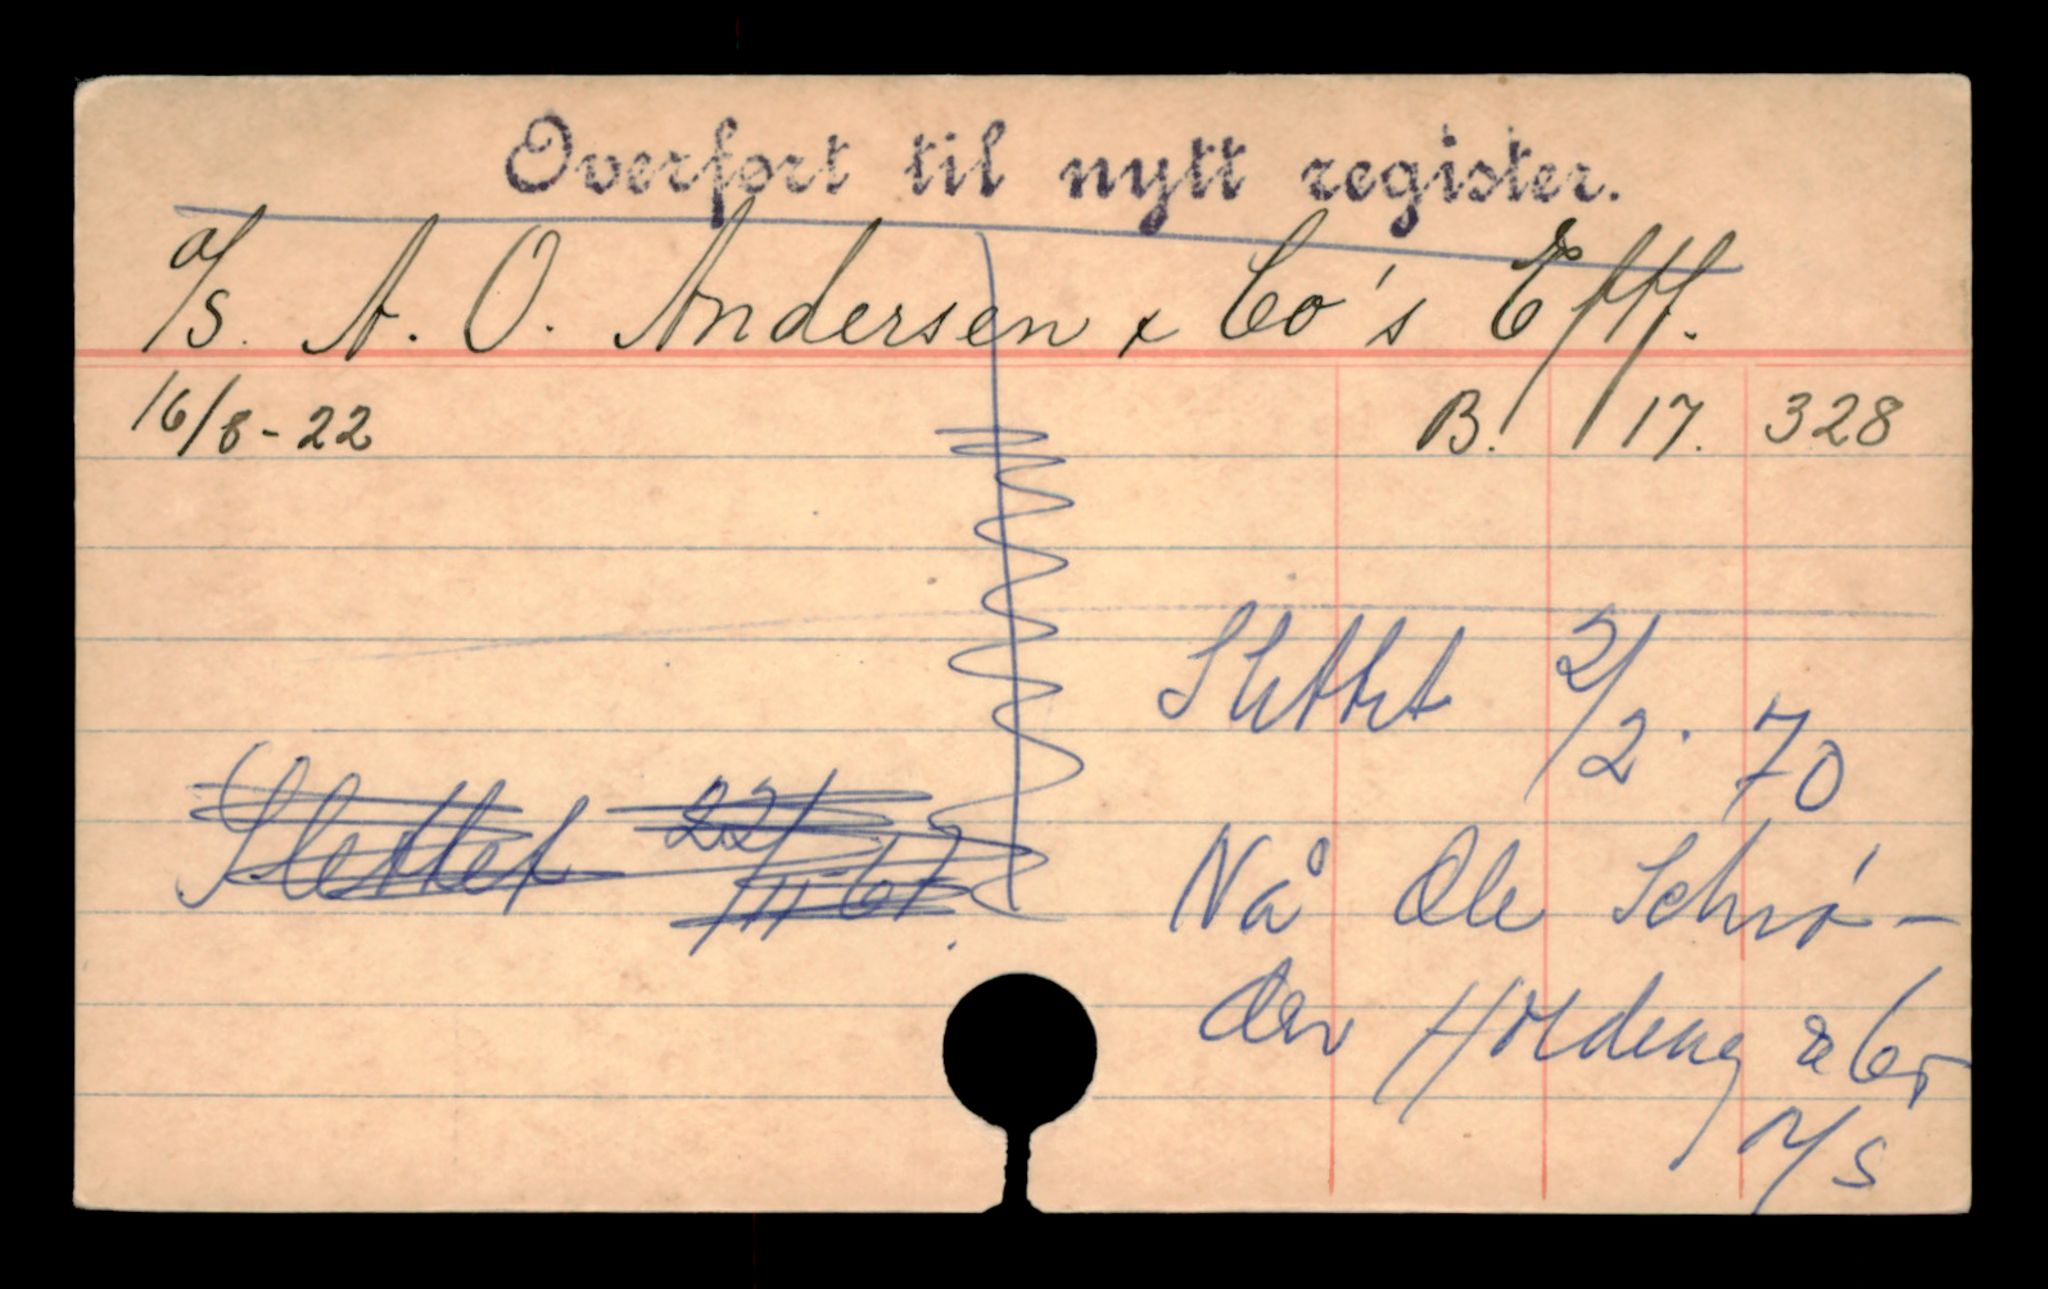 Overført til nytt register.
a/s. A. O. Andersen & Co's Eftf.
16/8-22 B. 17. 328
Slettet 2/2. 70
Slettet 22/11-67.
Nå Ole Schrø-
der Holding &
A/S